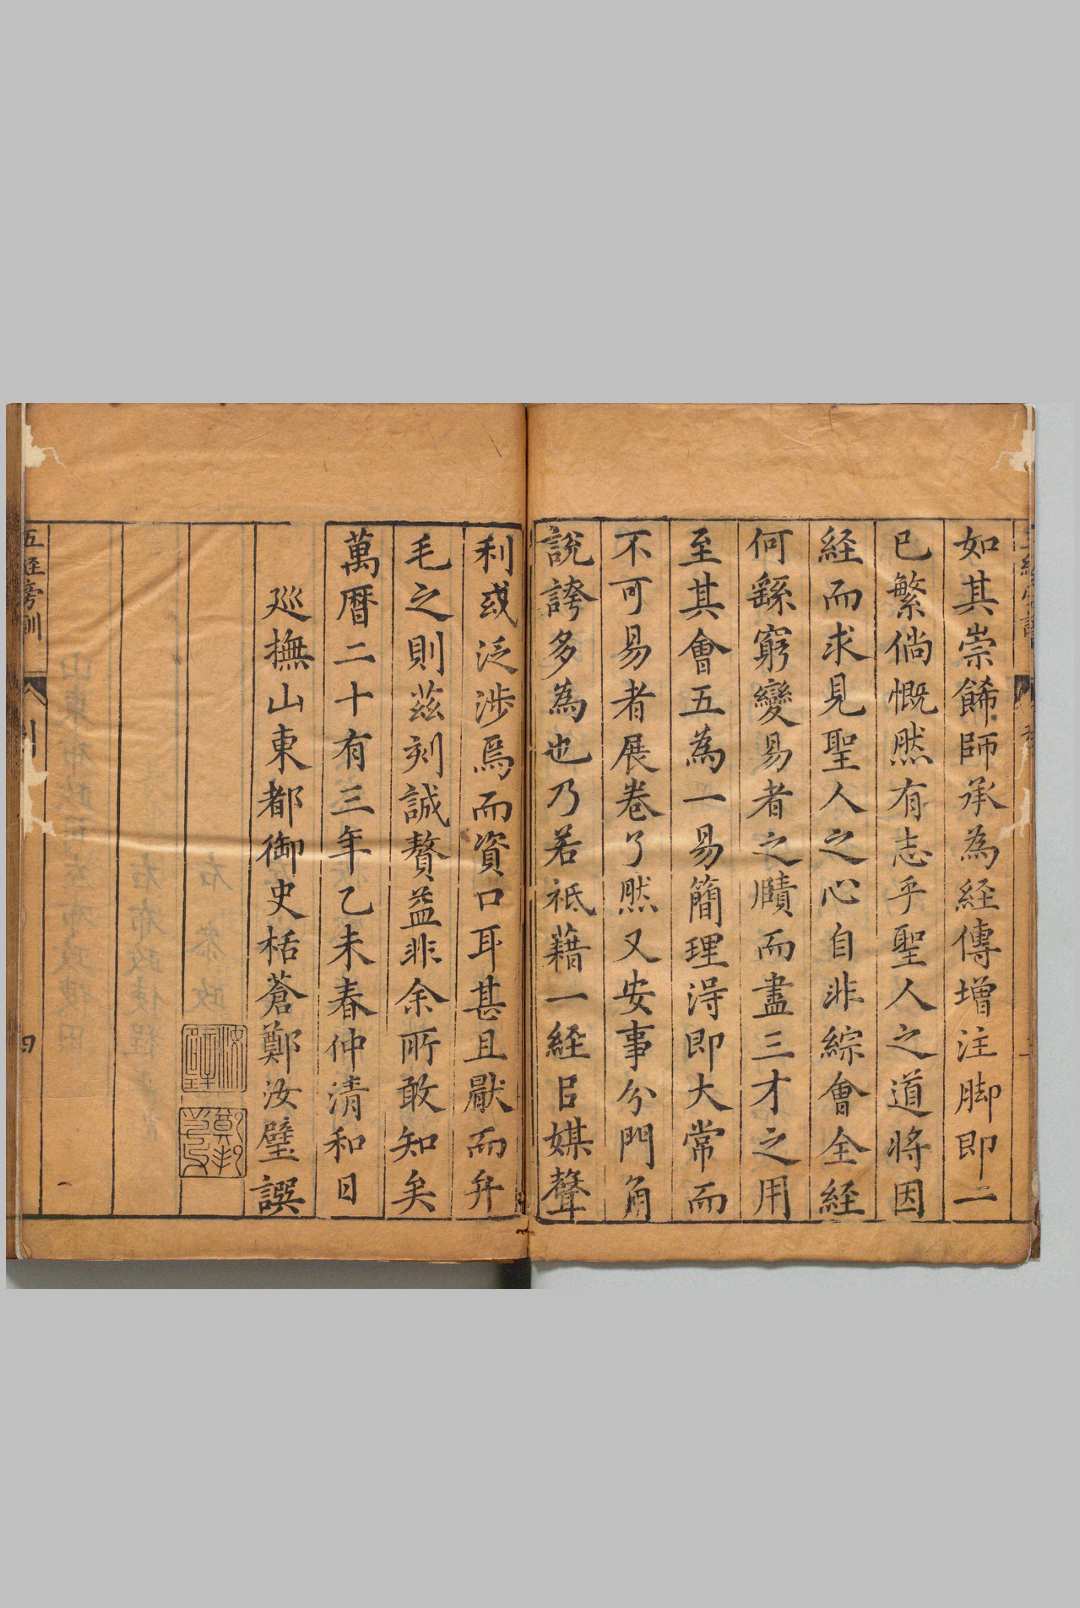 如其崇餙師承為経傳增注脚即一
已繁倘慨然有志乎聖人之道將因
経而求見聖人之心自非綜會全経
何繇窮變易者之賾而盡三才之用
至其會五為一易簡理淂即大常而
不可易者展卷了然又安事分門角
說誇多為也乃若祇藉一経㠯媒聲
利或泛涉焉而資口耳甚且厭而弁
毛之則茲刻誠贅益非余所敢知矣
萬曆二十有三年乙未春仲清和日
巡撫山東都御史栝蒼鄭汝璧譔
五經旁訓
四